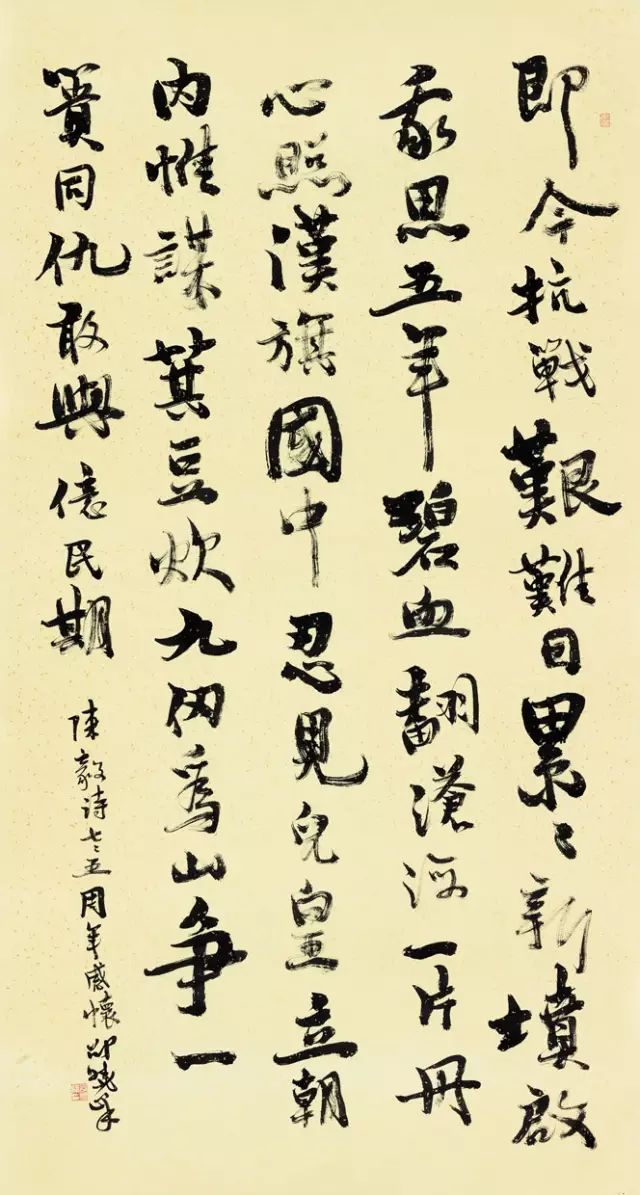 即今抗戰艱難日累〻新墳啟
我思五年碧血翻滄海一片丹
心照漢旗國中忍見兒皇立朝
内惟謀萁豆炊九仞爲山争一
簣同仇敢與億民期
陳毅詩七十五周年感懷 邵曉峰